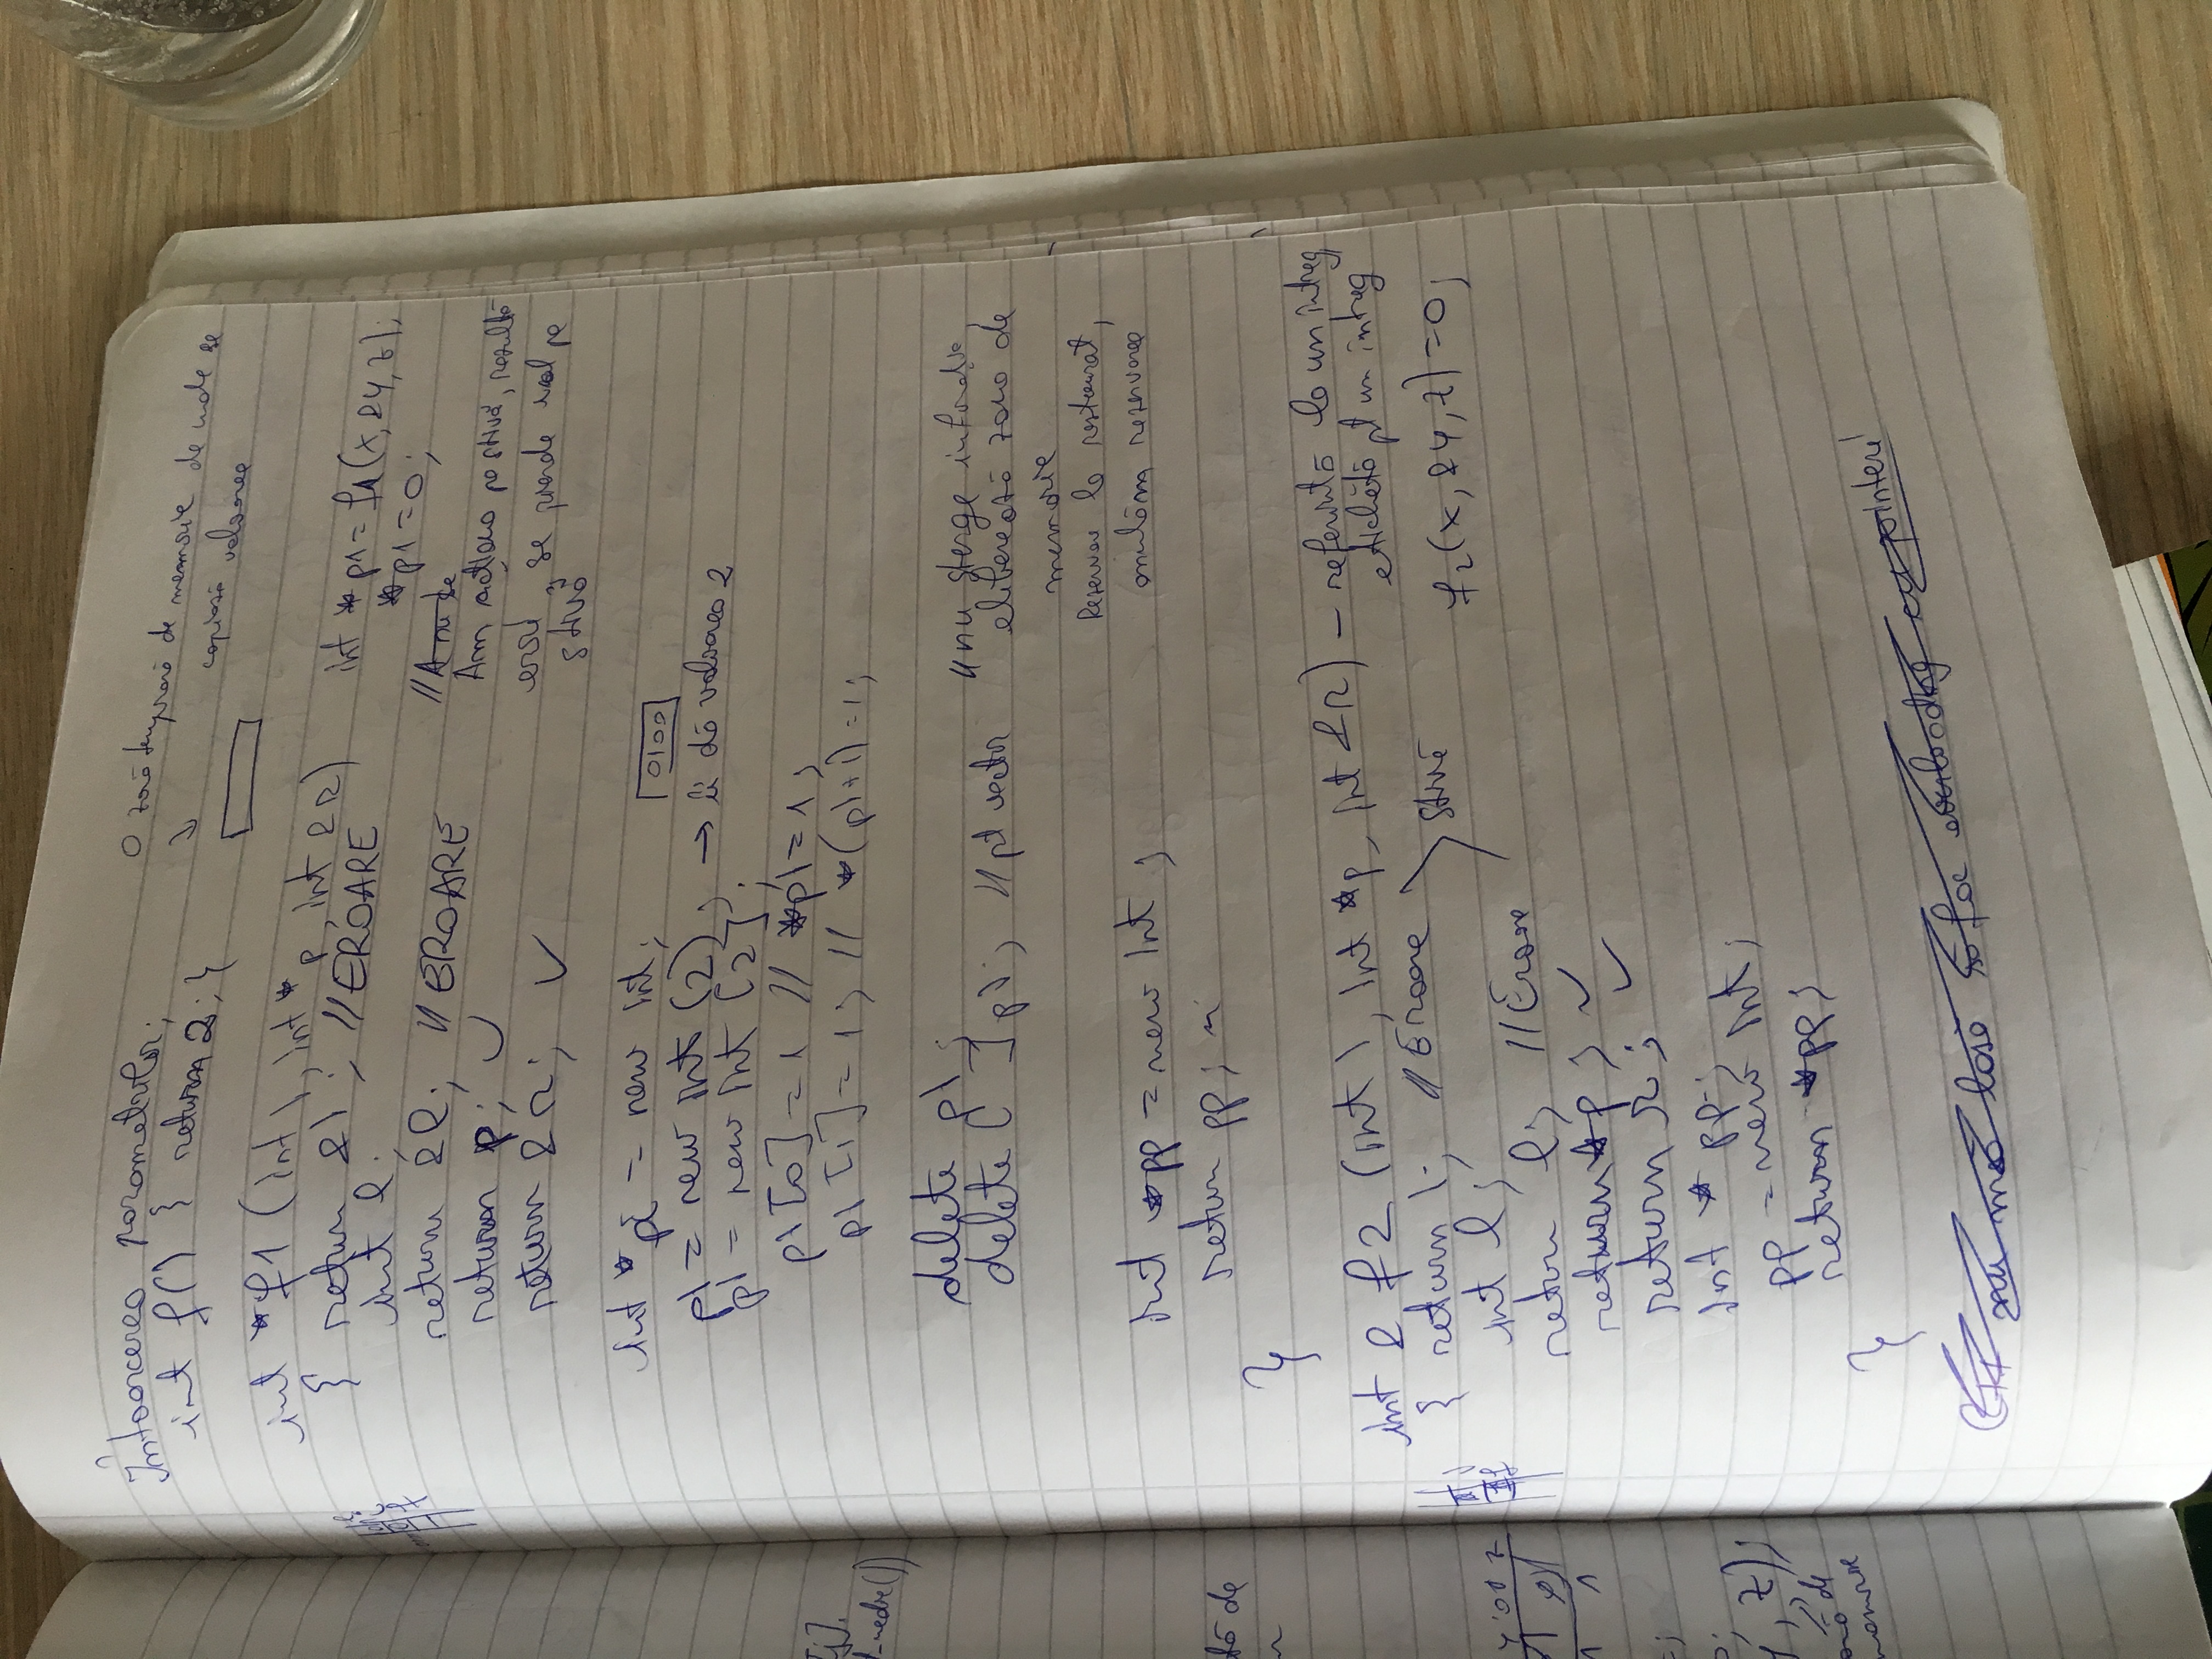 Întoarcerea parametrilor;
int f() { return 2; }
O zonă temporară de memorie de unde se
copiază valoarea
int *f1 (int i, int *p, int &r)
{ return &i; // EROARE
int l;
return &l; // EROARE
return p; ✓
return &r; ✓
int *p1 = f1(x, &y, z);
*p1 = 0;
//
Am acționa pe stivă, rezultă
erori, se pierde val pe
stivă
int *pi = new int;
pi = new int (2); → îi dă valoarea 2
0100
pi = new int [2];
pi[0] = 1 // *pi = 1;
pi[1] = 1; // *(pi+1) = 1;
delete pi;
delete [ ] pi; // pt vector
// nu șterge informația,
eliberează zona de
memorie
Rezervare la restaurat,
anulăm rezervarea
int *pp = new int;
return pp;
}
int & f2 (int i, int *p, int &r) – referință la un întreg,
etichetă pt un întreg
{ return i; // Eroare
stivă
int l;
return l; // Eroare
f2(x, &y, z) = 0;
return *p; ✓
return r; ✓
int * pp;
pp = new int;
return *pp;
}
C++ nu mă lasă să fac overloading cu pointeri
[j].
tă de
z);
ă de
memorie